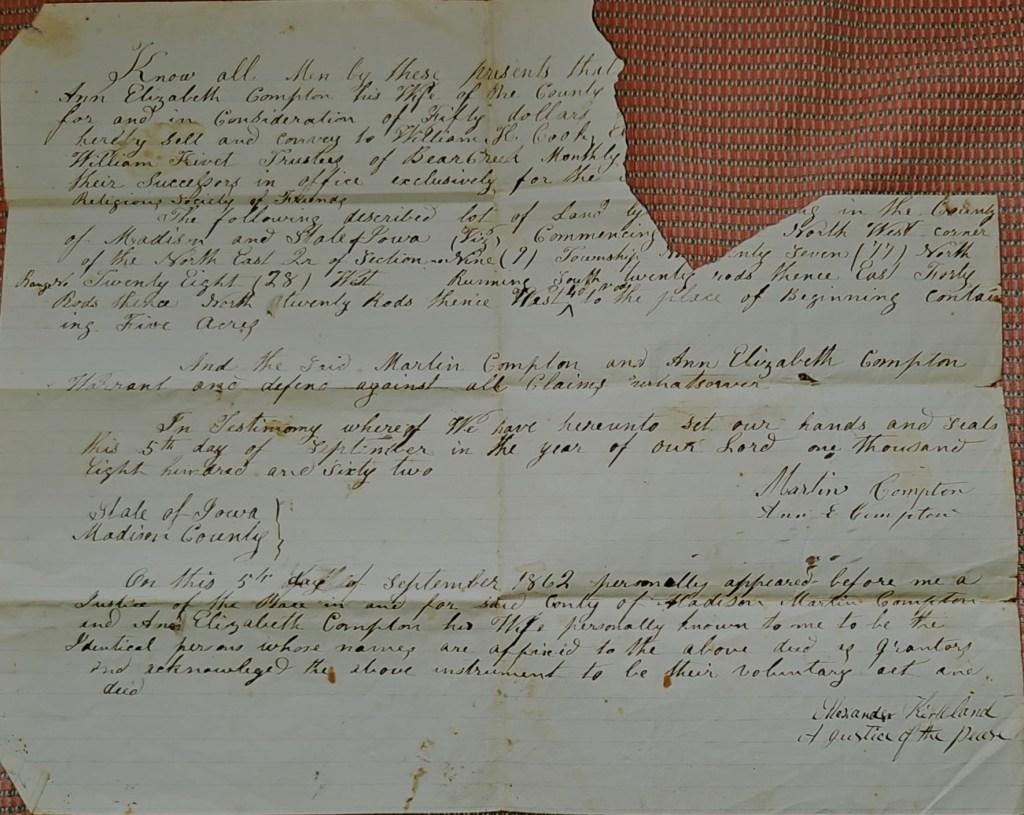 Know all Men by these presents that
Ann Elizabeth Compton his Wife of the County
for and in Consideration of Fifty dollars
hereby Sell and convey to William H. Cook,
William Trustees of Bear Creek Monthly
their Successors in office exclusively for the
Religious Society of Friends
The following described lot of Land ly ng in the County
of Madison and State of Iowa (Viz) Commencing North West corner
of the North East Qr of Section Nine (9) Township Seven (77) North
Range No Twenty Eight (28) West Running South twenty rods thence East Forty
Rods thence North twenty Rods thence West 40 rods to the place of Beginning contain
ing Five Acres
And the Said Martin Compton and Ann Elizabeth Compton
Warrant and defend against all Claims whatsoever
In Testimony whereof We have hereunto Set our hands and Seals
this 5th day of September in the year of our Lord one thousand
Eight hundred and sixty two
Martin Compton
Ann E Compton
State of Iowa
Madison County
On this 5th day of September 1862 personally appeared before me a
Justice of the Peace in and for said County of Madison Martin Compton
and Ann Elizabeth Compton his Wife personally known to me to be the
Identical persons whose names are affixed to the above deed as Grantors
and acknowleged the above instrument to be their voluntary act and
deed
Alexander Kirkland
A Justice of the Peace